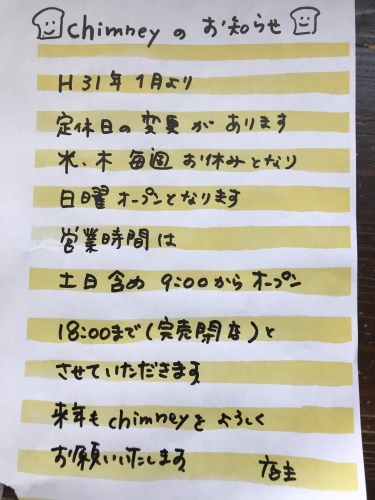 chimneyのお知らせ
H31年1月より
定休日の変更があります
水、木毎週お休みとなり
日曜オープンとなります
営業時間は
土日含め 9:00からオープン
18:00まで(完売閉店)と
させていただきます
来年もchimneyをよろしく
お願いいたします 店主